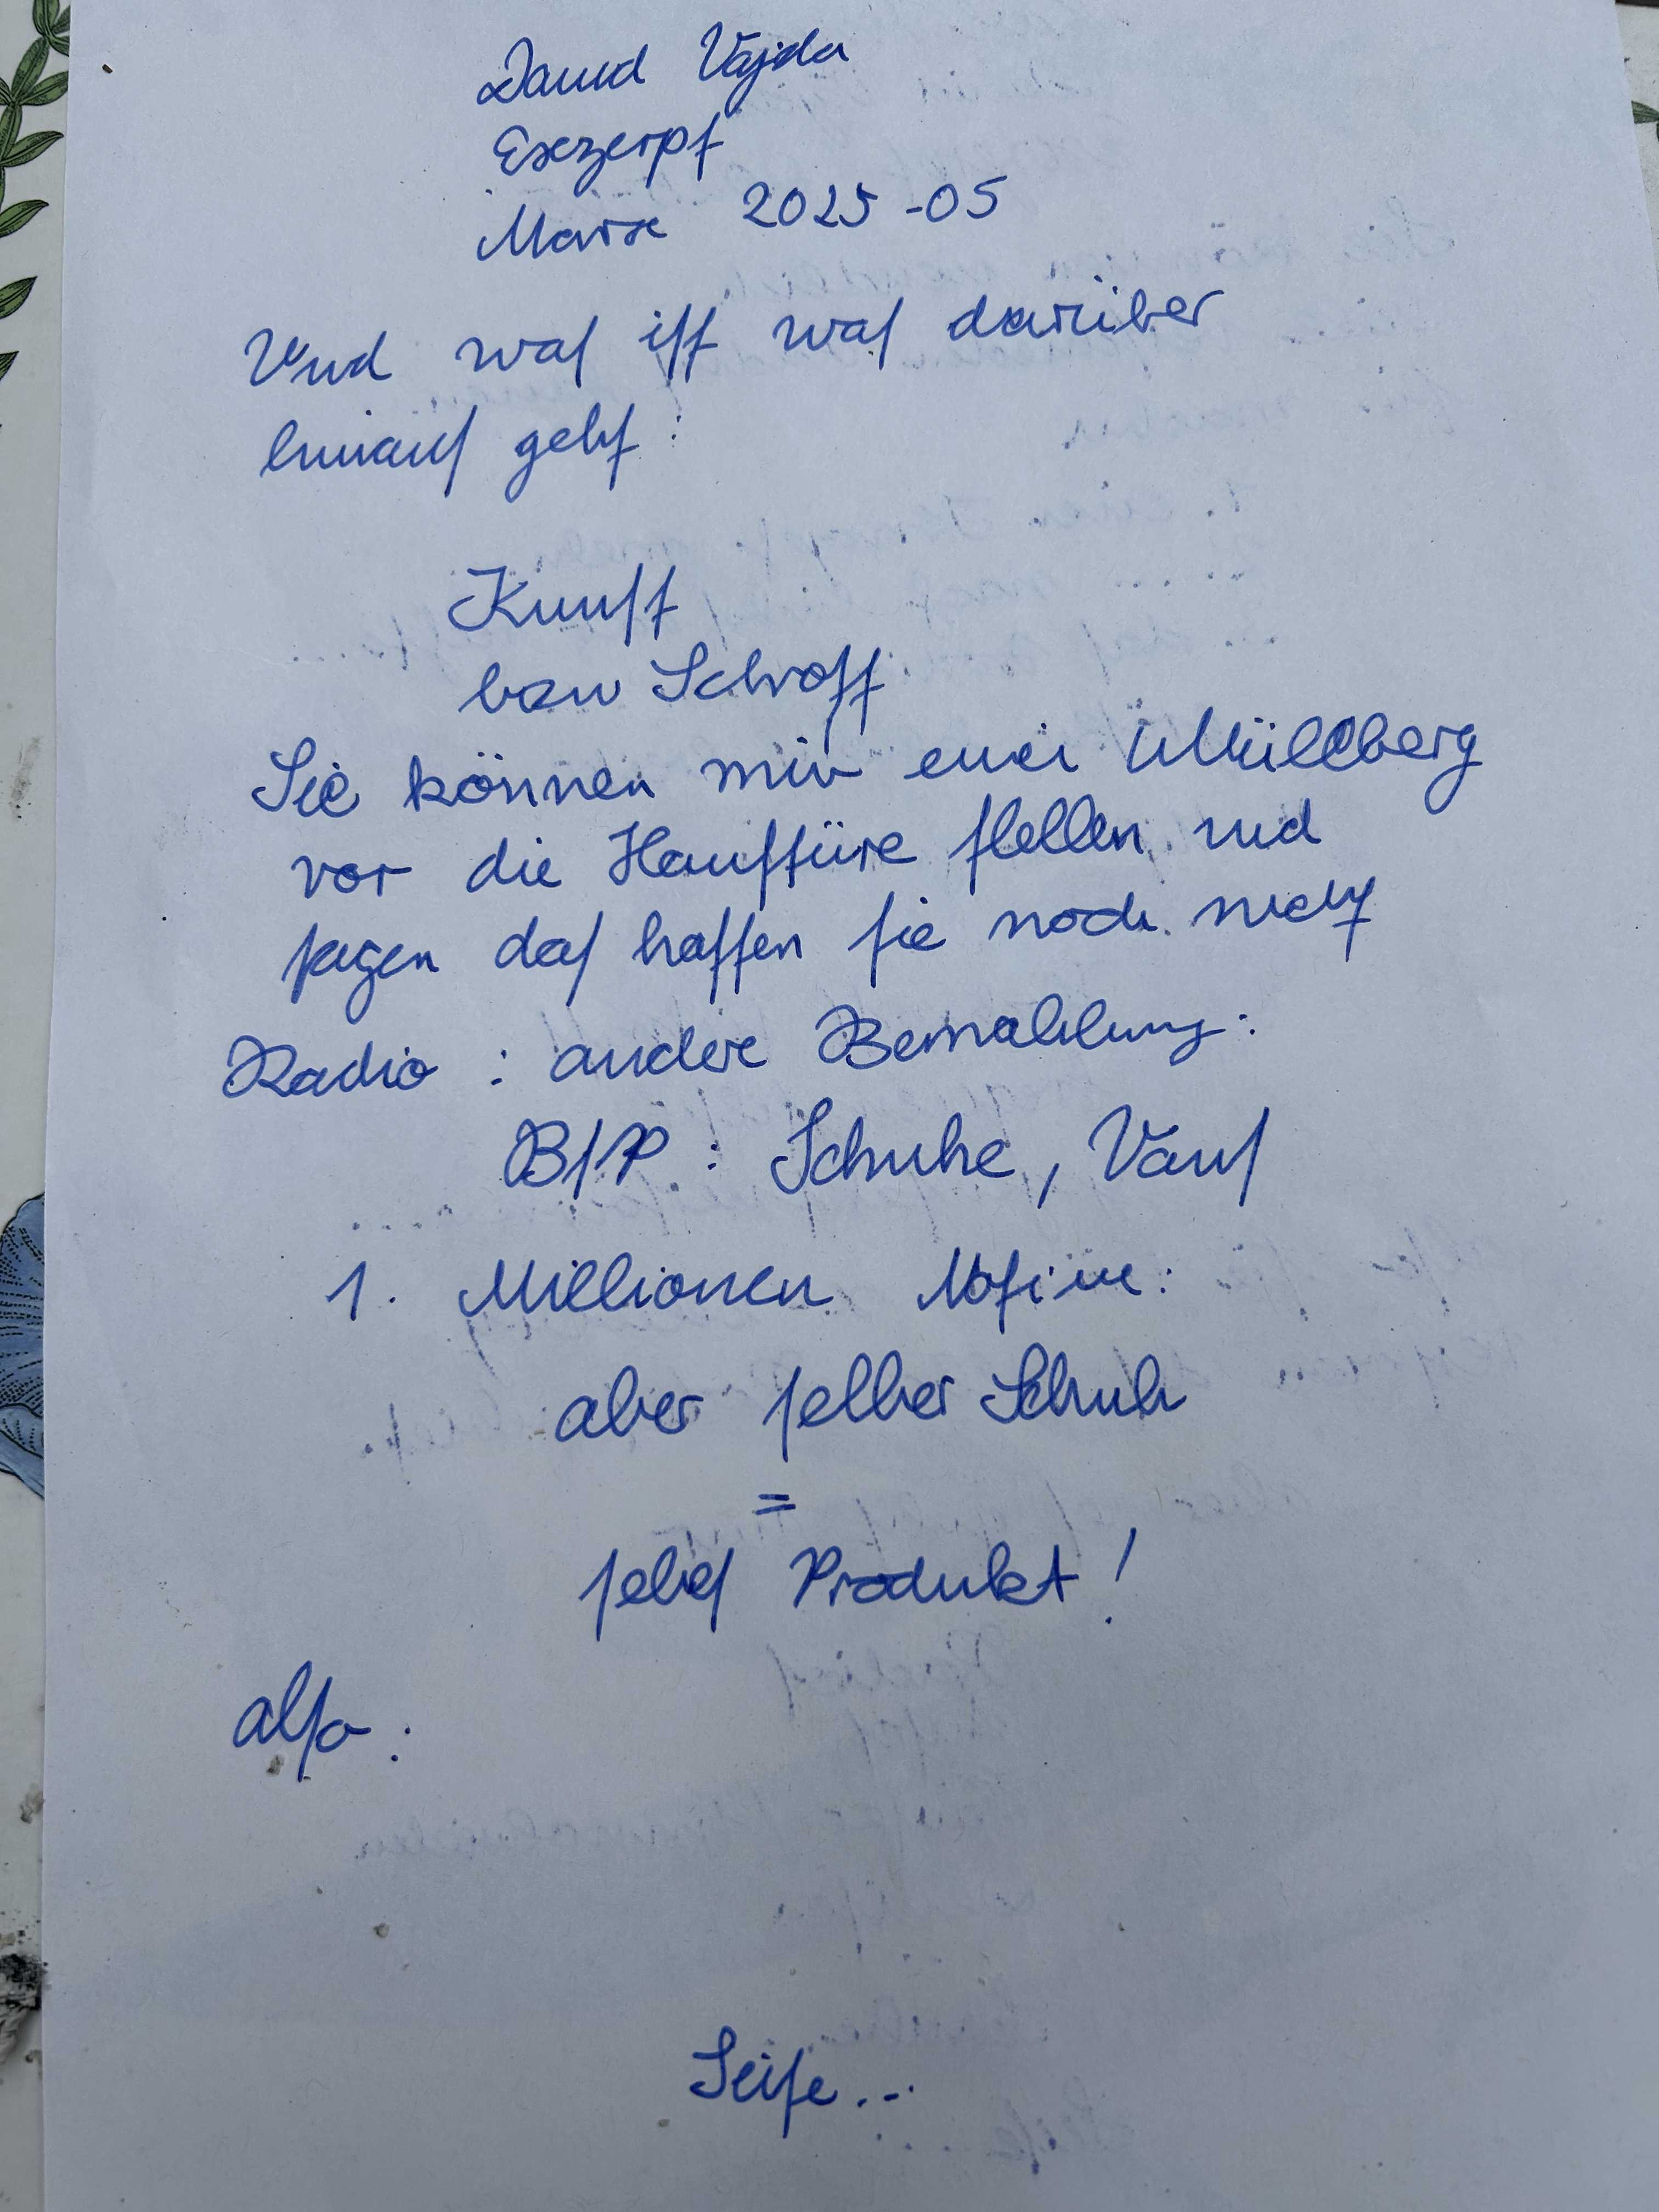 David Vajda
Exzerpt
Marx 2025-05
Und waſ iſt waſ darüber
hinauſ geht:
Kunſt
bzw Schrott
Sie können mir einen Müllberg
vor die Hauſtüre ſtellen und
ſagen daſ hatten ſie noch nicht
Radio: andere Bemahlung:
BſP: Schuhe, Vanſ
1. Millionen Motive:
aber ſelber Schuh
=
ſelbeſ Produkt!
alſo:
Seife...